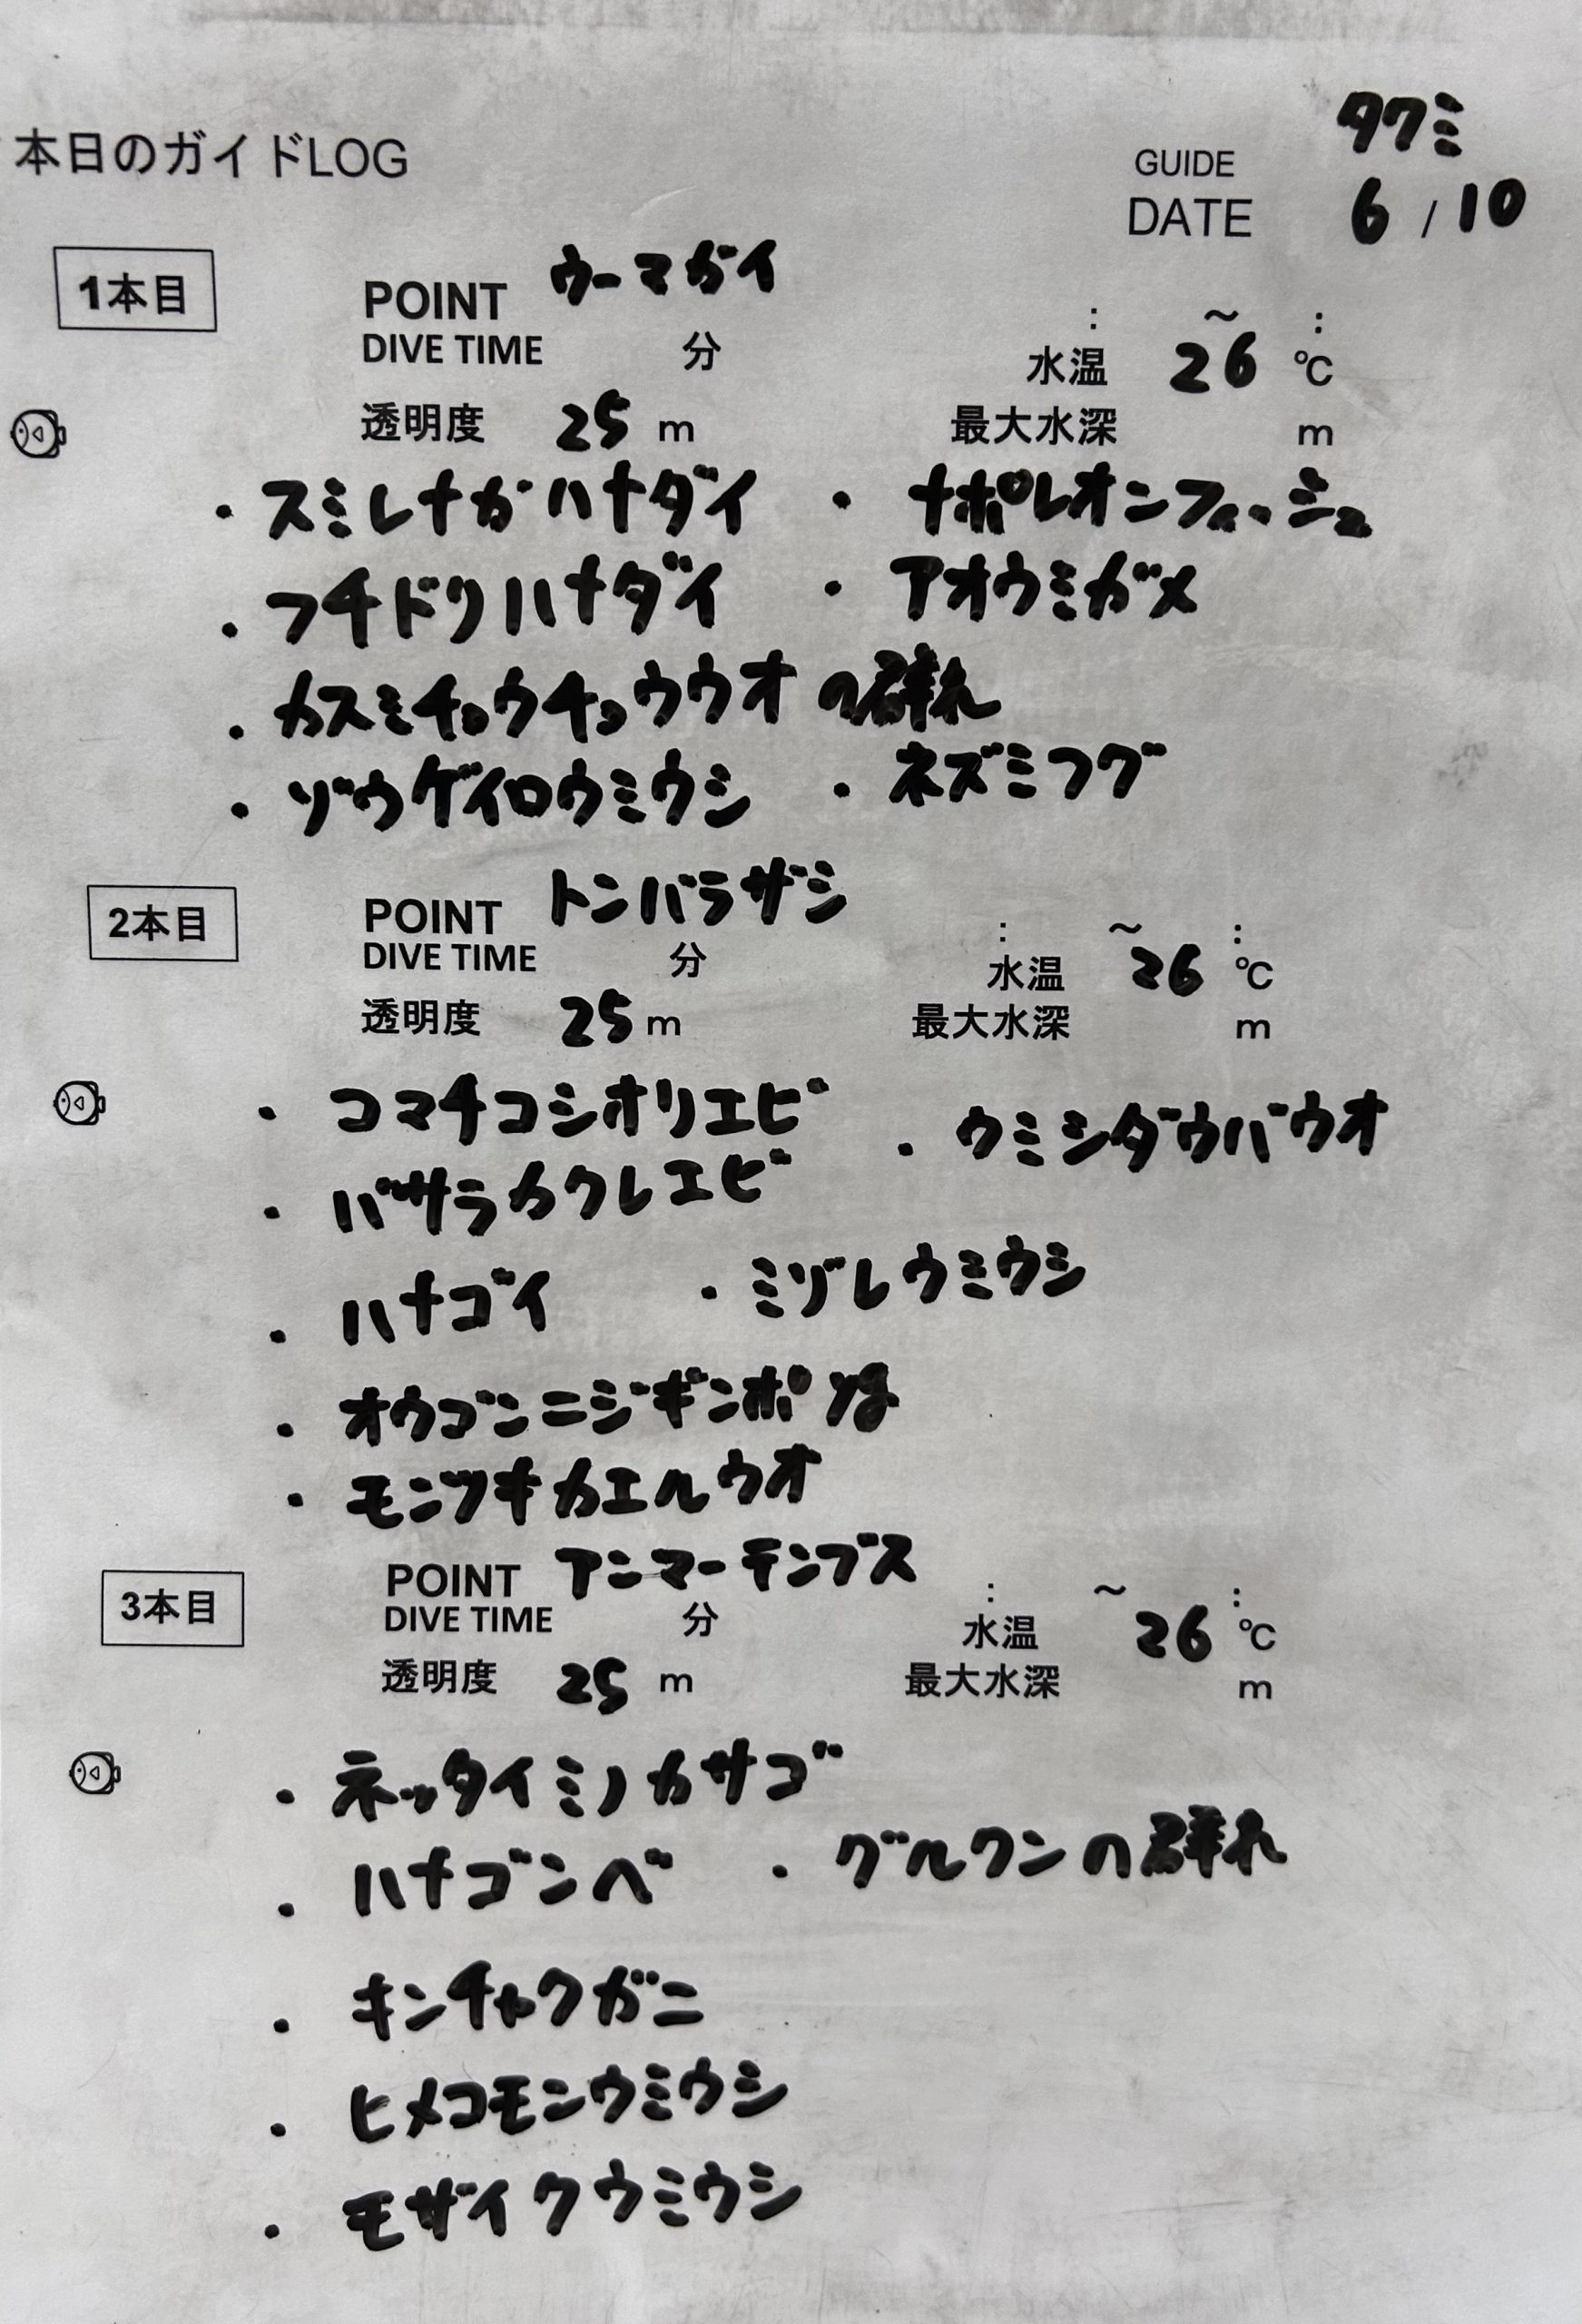 本日のガイドLOG
GUIDE タクミ
DATE 6 / 10
1本目
POINT ウーマガイ
: ～ :
DIVE TIME 分 水温 26 ℃
透明度 25 m 最大水深 m
・スミレナガハナダイ ・ナポレオンフィッシュ
・フチドリハナダイ ・アオウミガメ
・カスミチョウチョウウオの群れ
・ゾウゲイロウミウシ ・ネズミフグ
2本目
POINT トンバラザシ
: ～ :
DIVE TIME 分 水温 26 ℃
透明度 25 m 最大水深 m
・コマチコシオリエビ ・ウミシダウバウオ
・バサラカクレエビ
・ハナゴイ ・ミゾレウミウシ
・オウゴンニジギンポ yg
・モンツキカエルウオ
3本目
POINT アンマーテンブス
: ～ :
DIVE TIME 分 水温 26 ℃
透明度 25 m 最大水深 m
・ネッタイミノカサゴ
・ハナゴンベ ・グルクンの群れ
・キンチャクガニ
・ヒメコモンウミウシ
・モザイクウミウシ